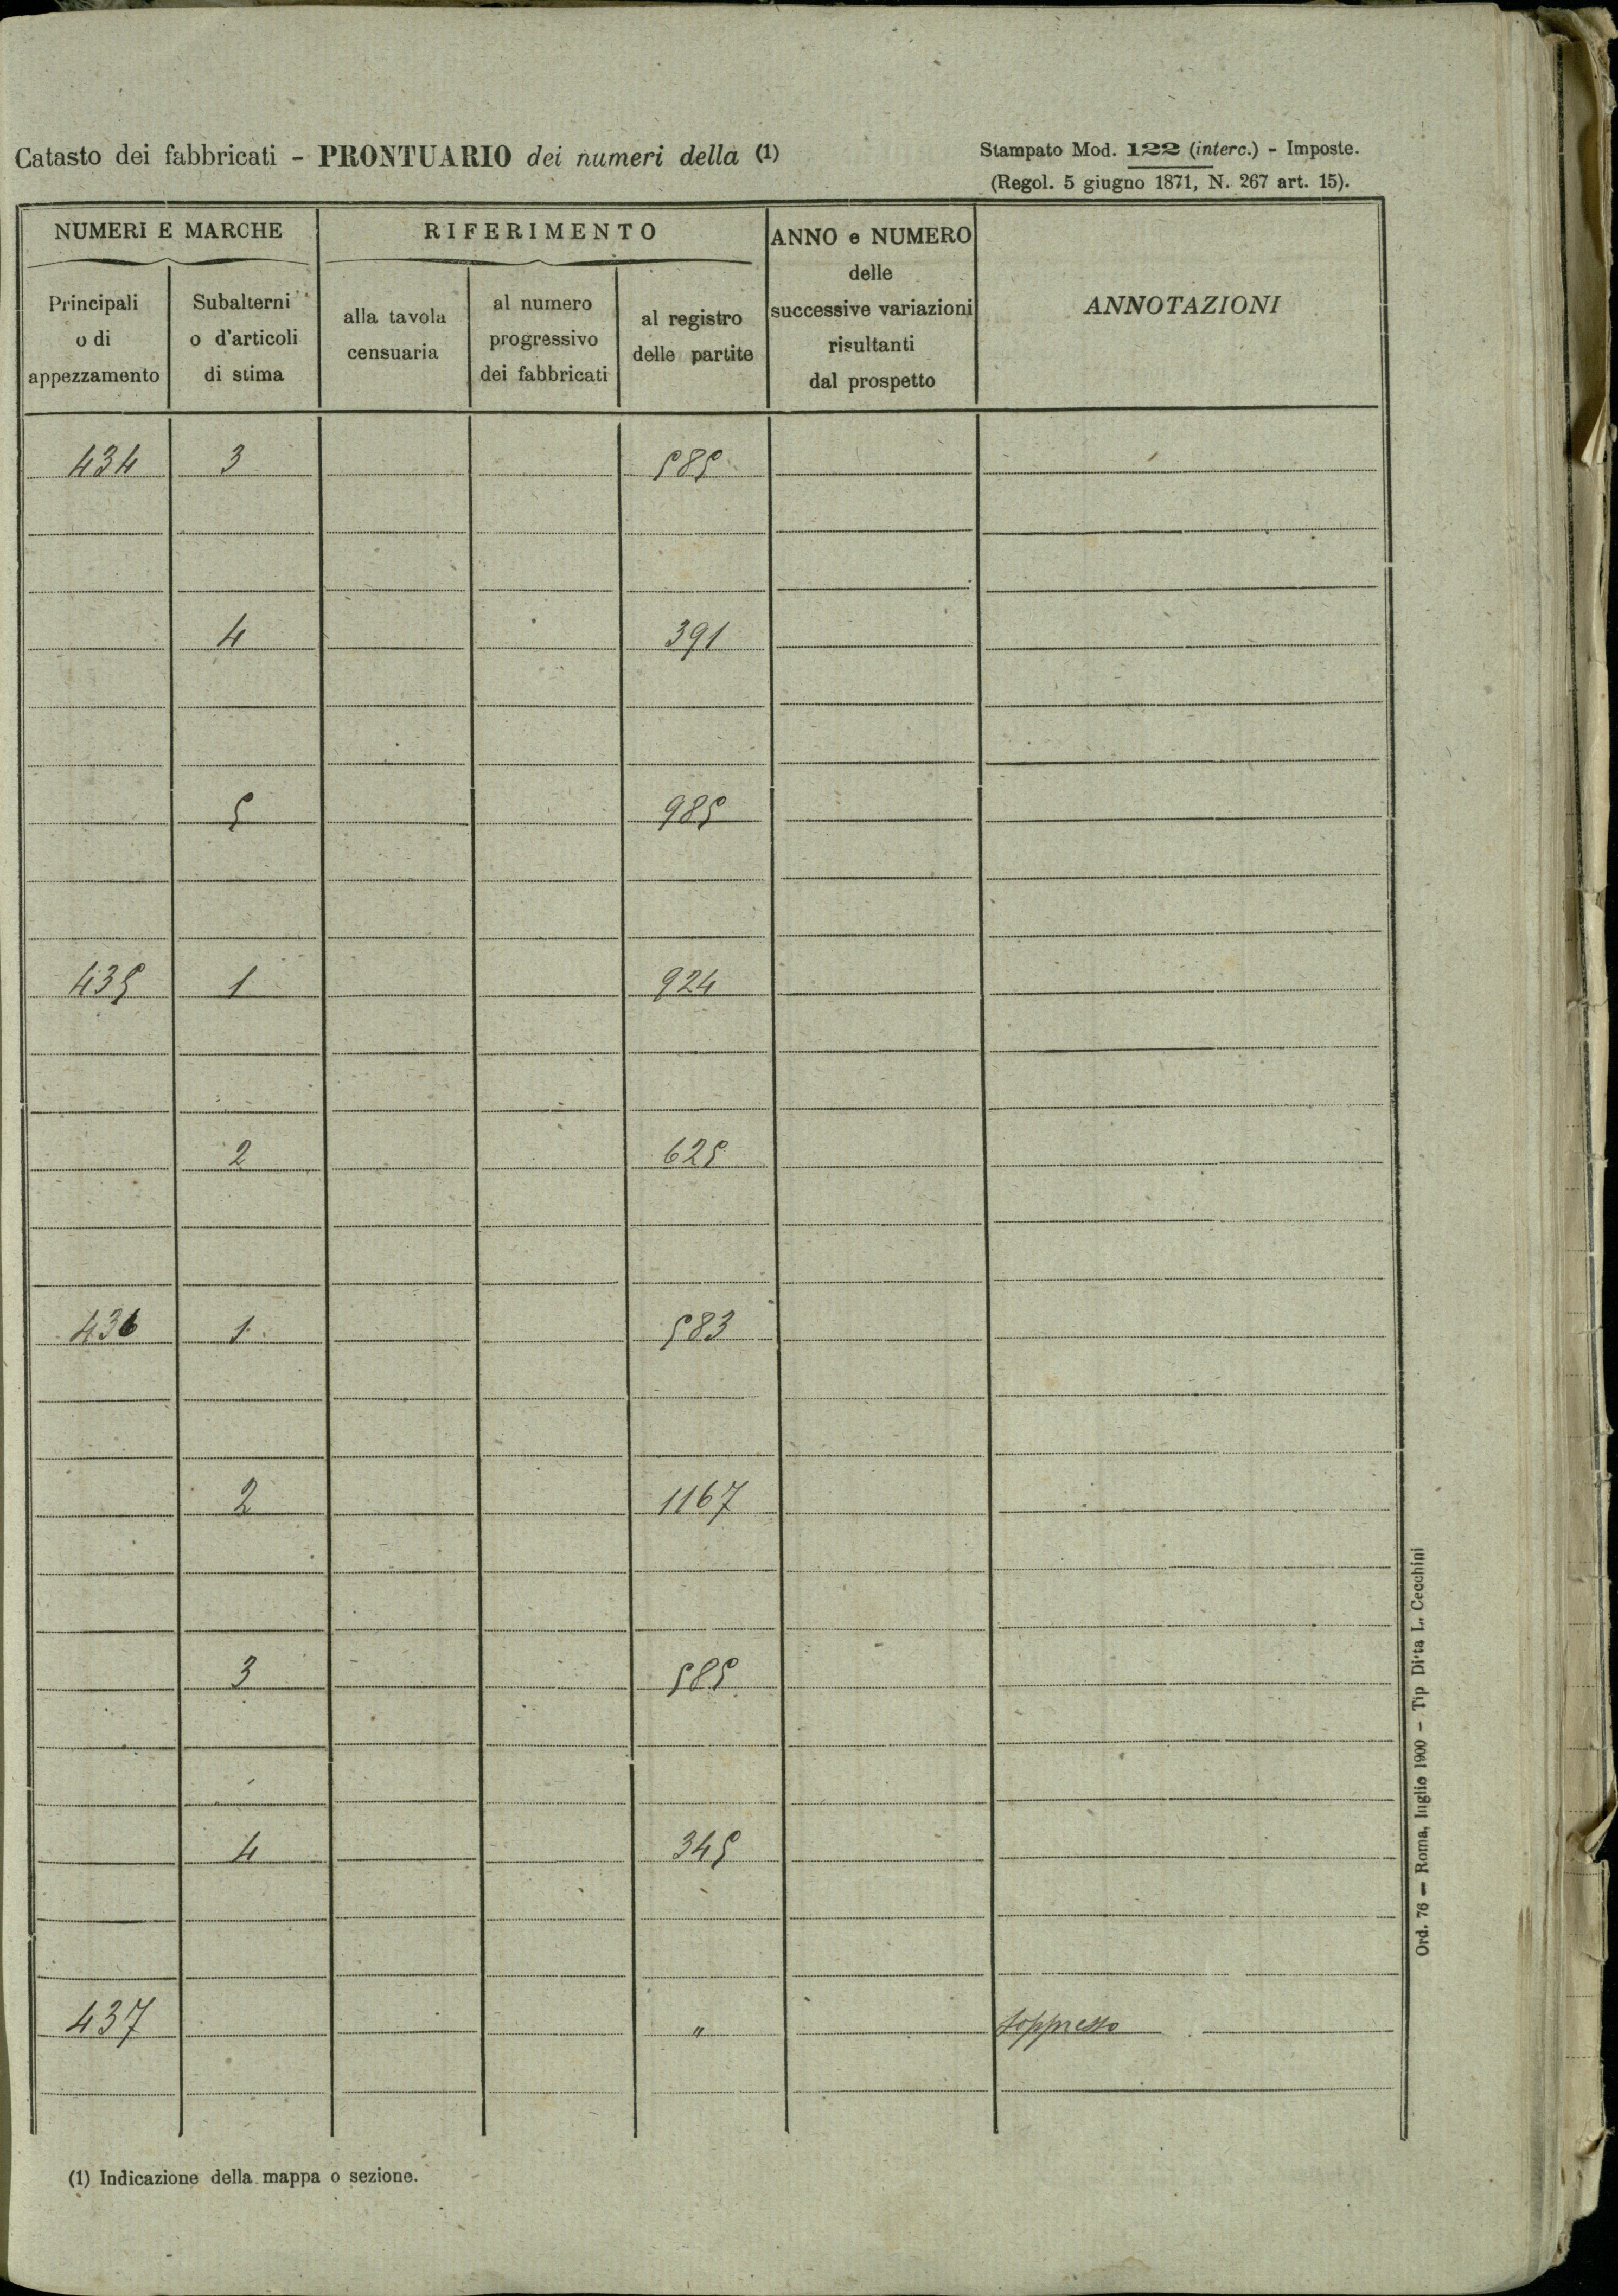 Catasto dei fabbricati - PRONTUARIO dei numeri della (1)
Stampato Mod. 122 (interc.) - Imposte.
(Regol. 5 giugno 1871, N. 267 art. 15).
NUMERI E MARCHE
RIFERIMENTO
ANNO e NUMERO
delle
successive variazioni
risultanti
dal prospetto
ANNOTAZIONI
Principali
o di
appezzamento
Subalterni
o d'articoli
di stima
alla tavola
censuaria
al numero
progressivo
dei fabbricati
al registro
delle partite
434 3 585
4 391
5 985
435 1 924
2 625
436 1 583
2 1167
3 585
4 345
437 " soppresso
(1) Indicazione della mappa o sezione.
Ord. 76 — Roma, luglio 1900 — Tip Ditta L. Cecchini